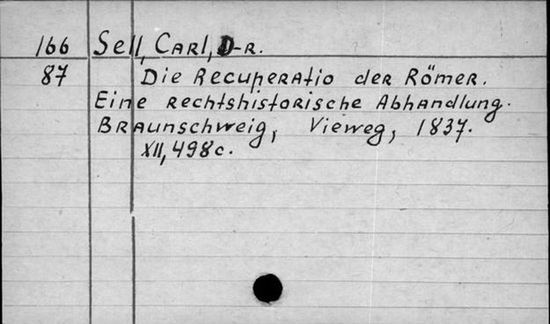 166 Sell, Carl, D-r.
87 Die Recuperatio der Römer.
Eine rechtshistorische Abhandlung.
Braunschweig, Vieweg, 1837.
XII, 498c.